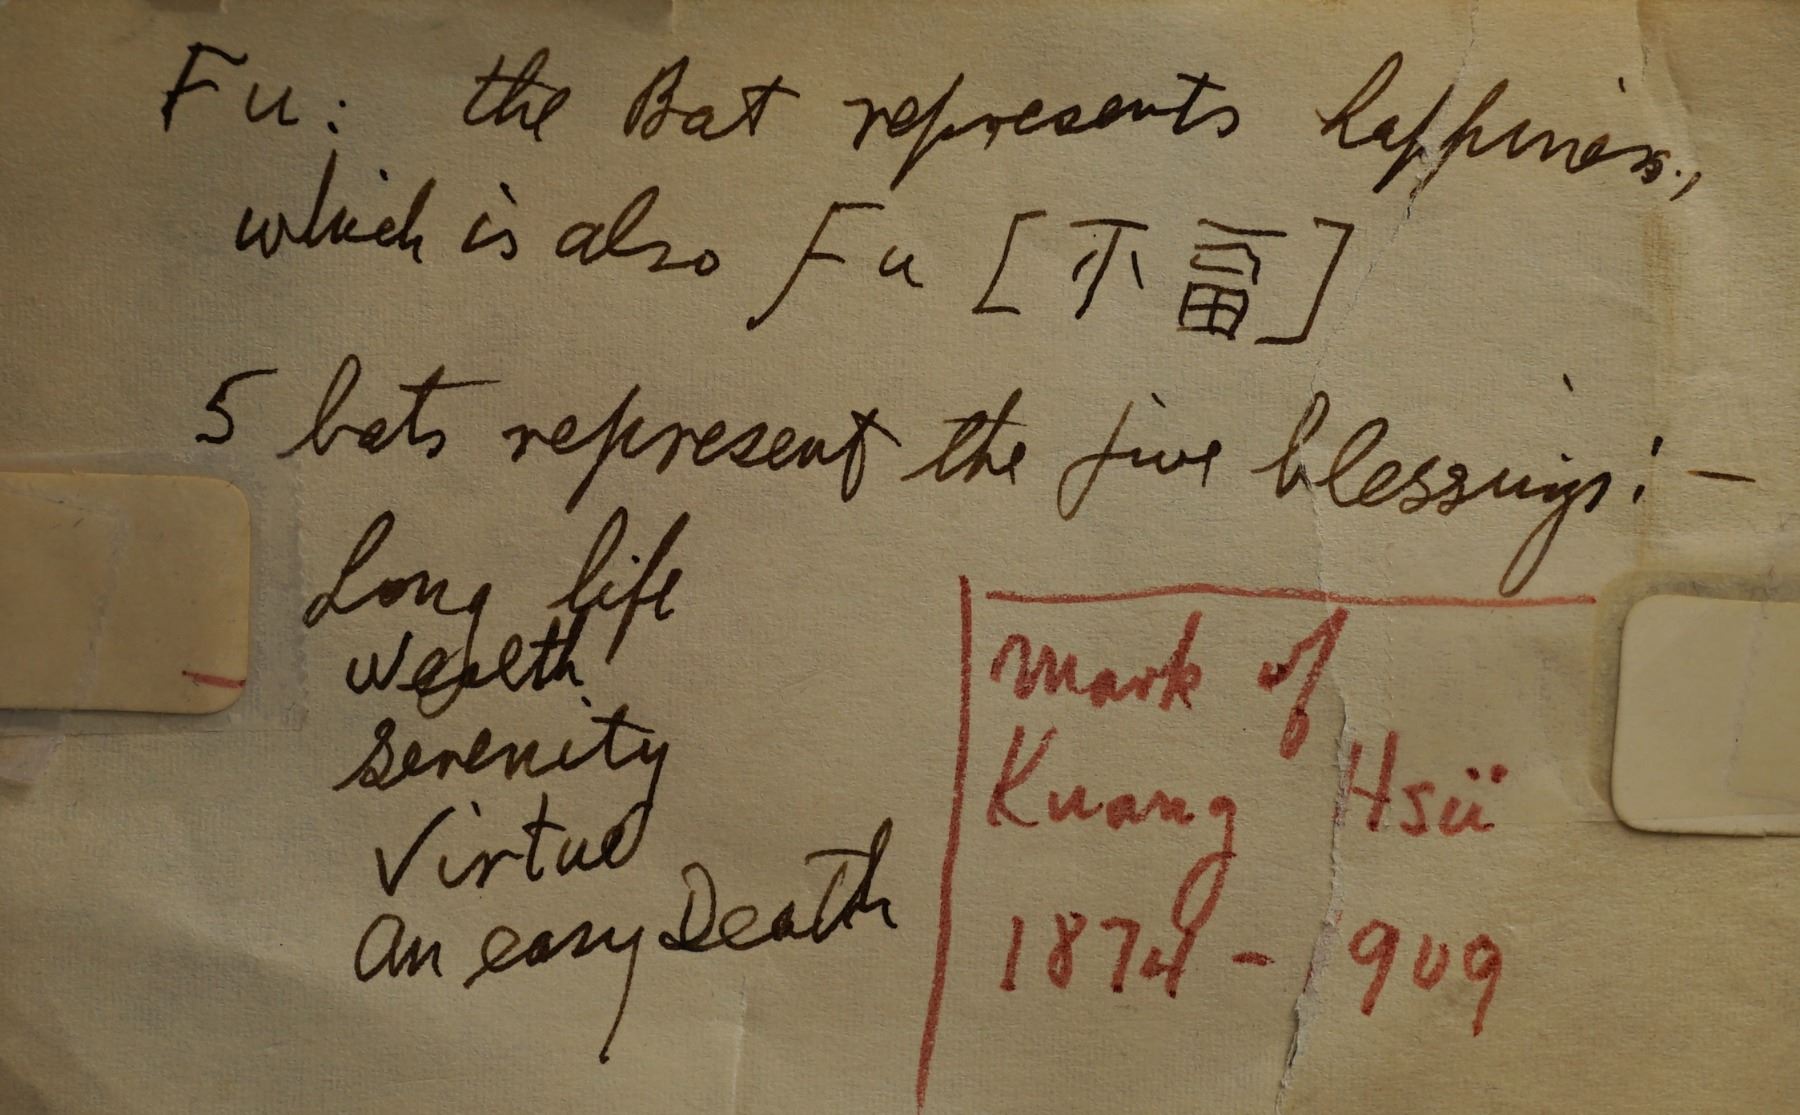 Fu: the Bat represents happiness,
which is also Fu [不畗]
5 bats represent the five blessings: -
Long life
Wealth
Serenity
Virtue
An easy Death
mark of
Kuang Hsü
1874 - 1909